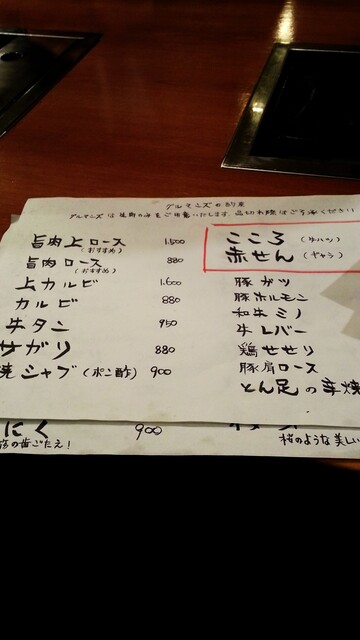 グルマンズの約束
グルマンズは生肉のみをご用意いたします。品切れ際はご了承ください
旨肉上ロース 1.500
(おすすめ)
旨肉ロース 880
(おすすめ)
上カルビ 1.600
カルビ 880
牛タン 950
サガリ 880
焼シャブ(ポン酢) 900
こころ (ハツ)
赤せん (ギャラ)
豚ガツ
豚ホルモン
和牛ミノ
牛レバー
鶏せせり
豚肩ロース
とん足の辛焼
にく 900
の歯ごたえ!
桜のような美しい